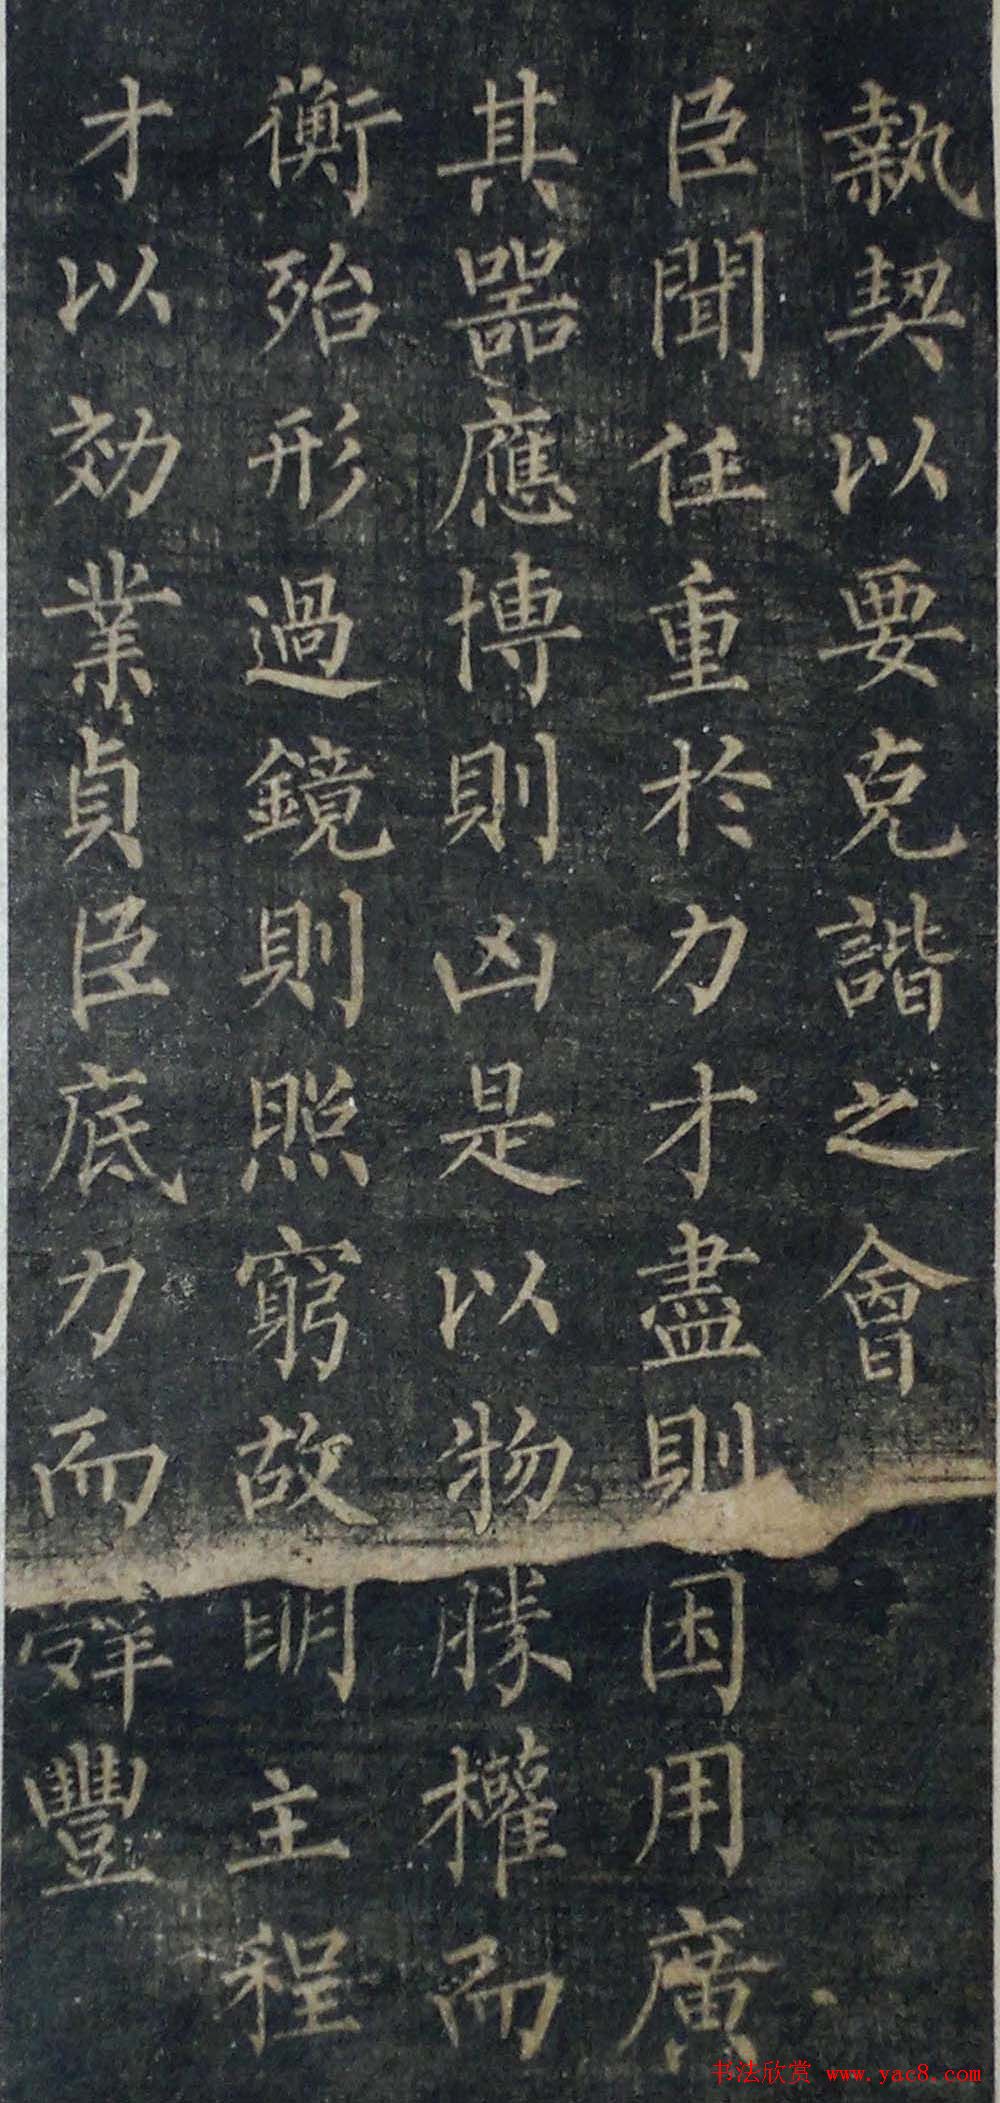 執契以要克諧之會
臣聞任重於力才盡則困用廣
其器應博則凶是以物勝權而
衡殆形過鏡則照窮故明主程
才以効業貞臣底力而辤豐
书法欣赏 www.yac8.com